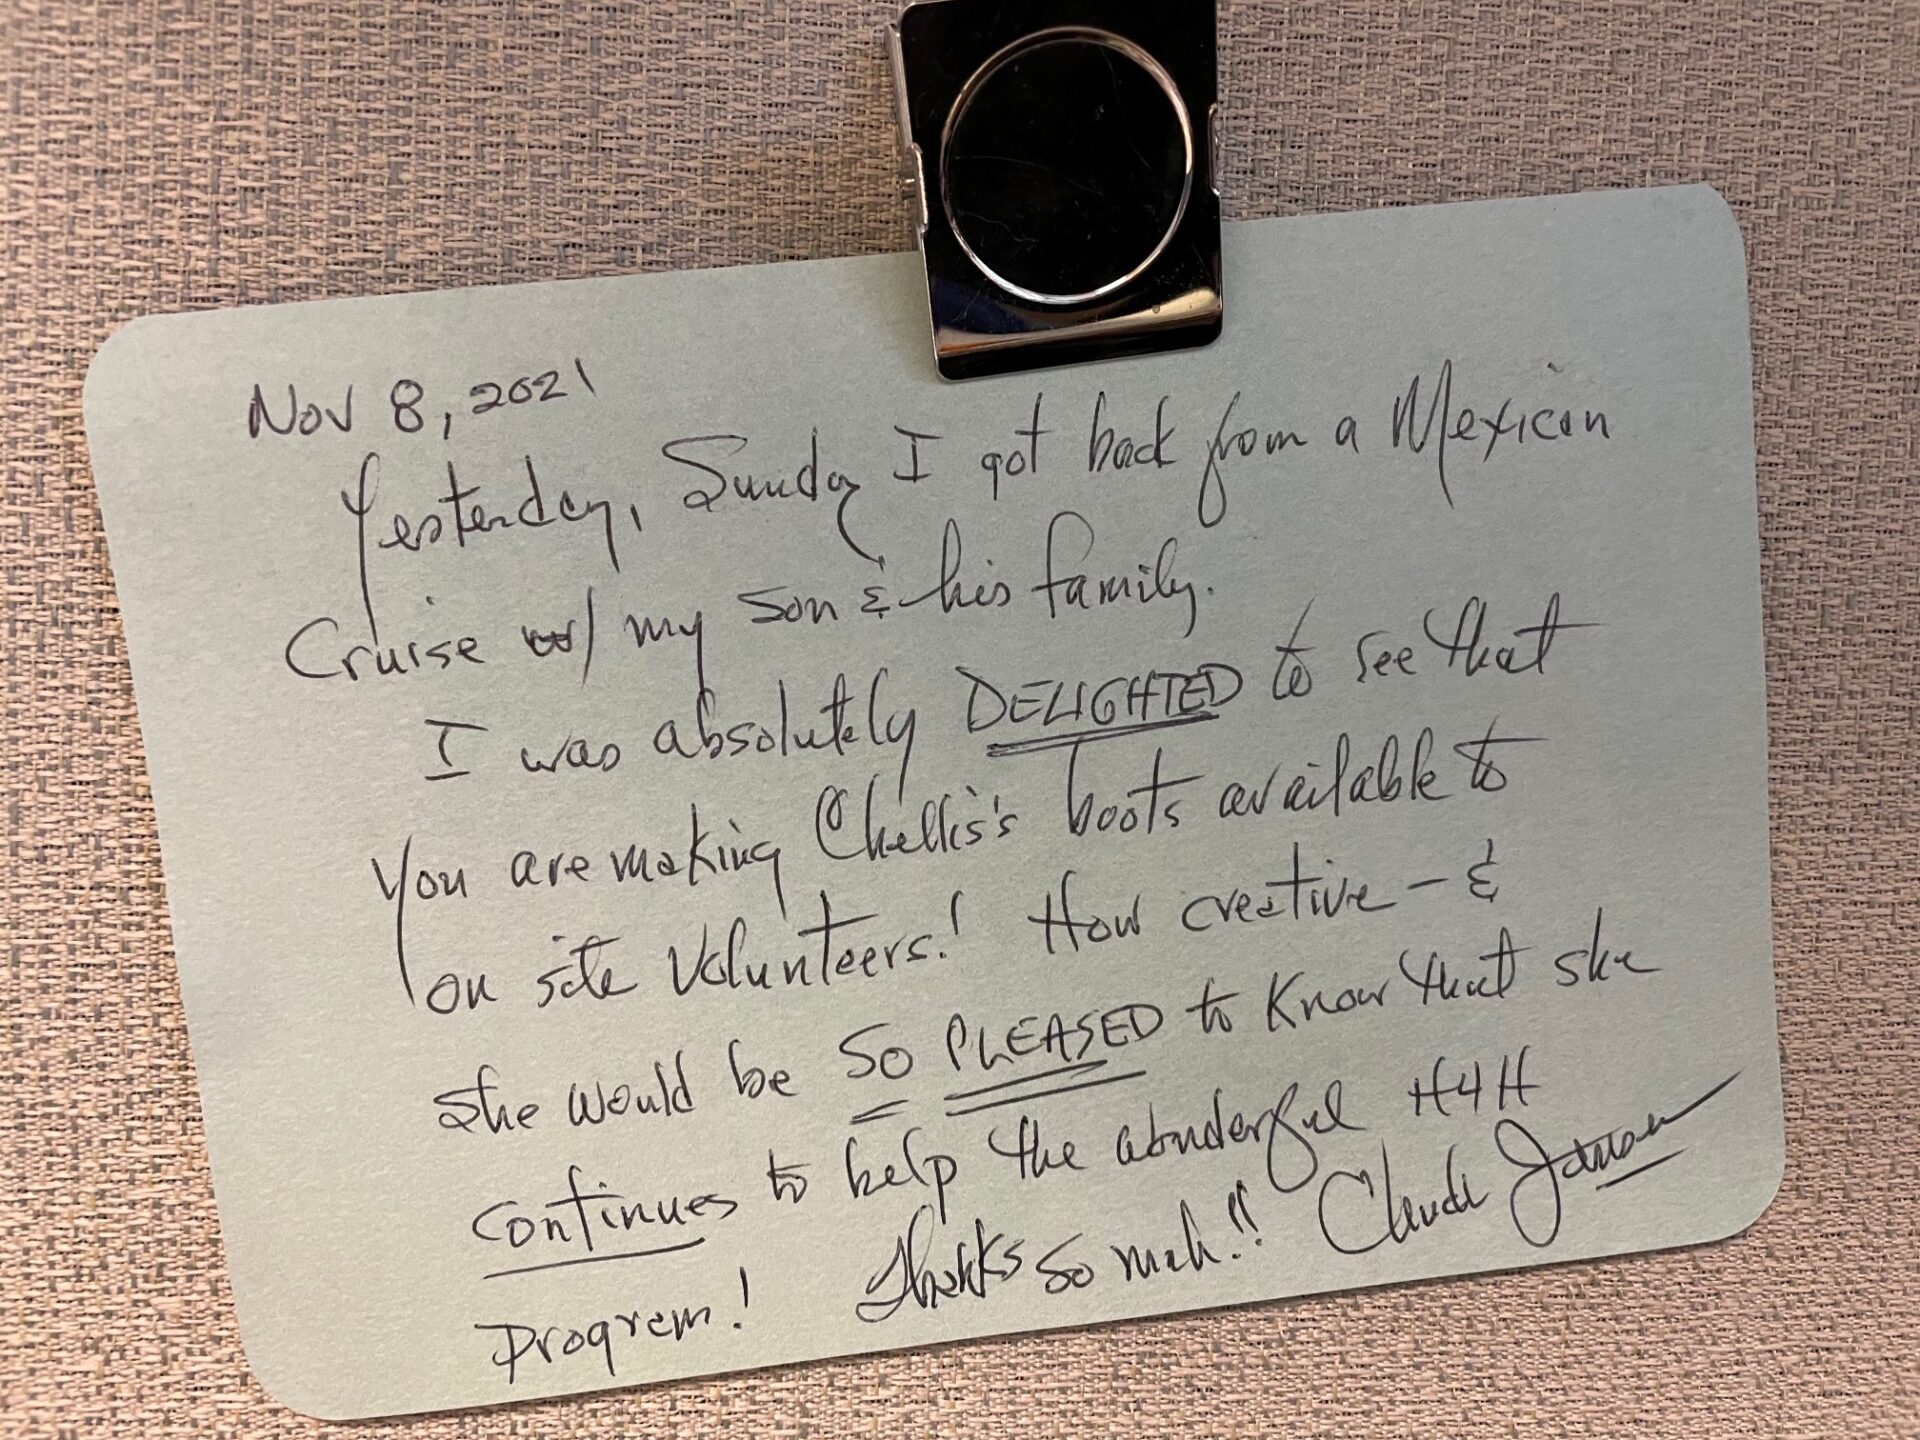 Nov 8, 2021
Yesterday, Sunday I got back from a Mexican
Cruise w/ my son & his family.
I was absolutely DELIGHTED to see that
you are making Chellis's boots available to
on site volunteers! How creative - &
she would be SO PLEASED to know that she
continues to help the wonderful H4H
program! Thanks so much!! Claude